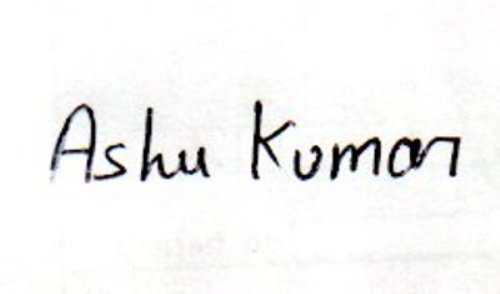 Ashu Kumar